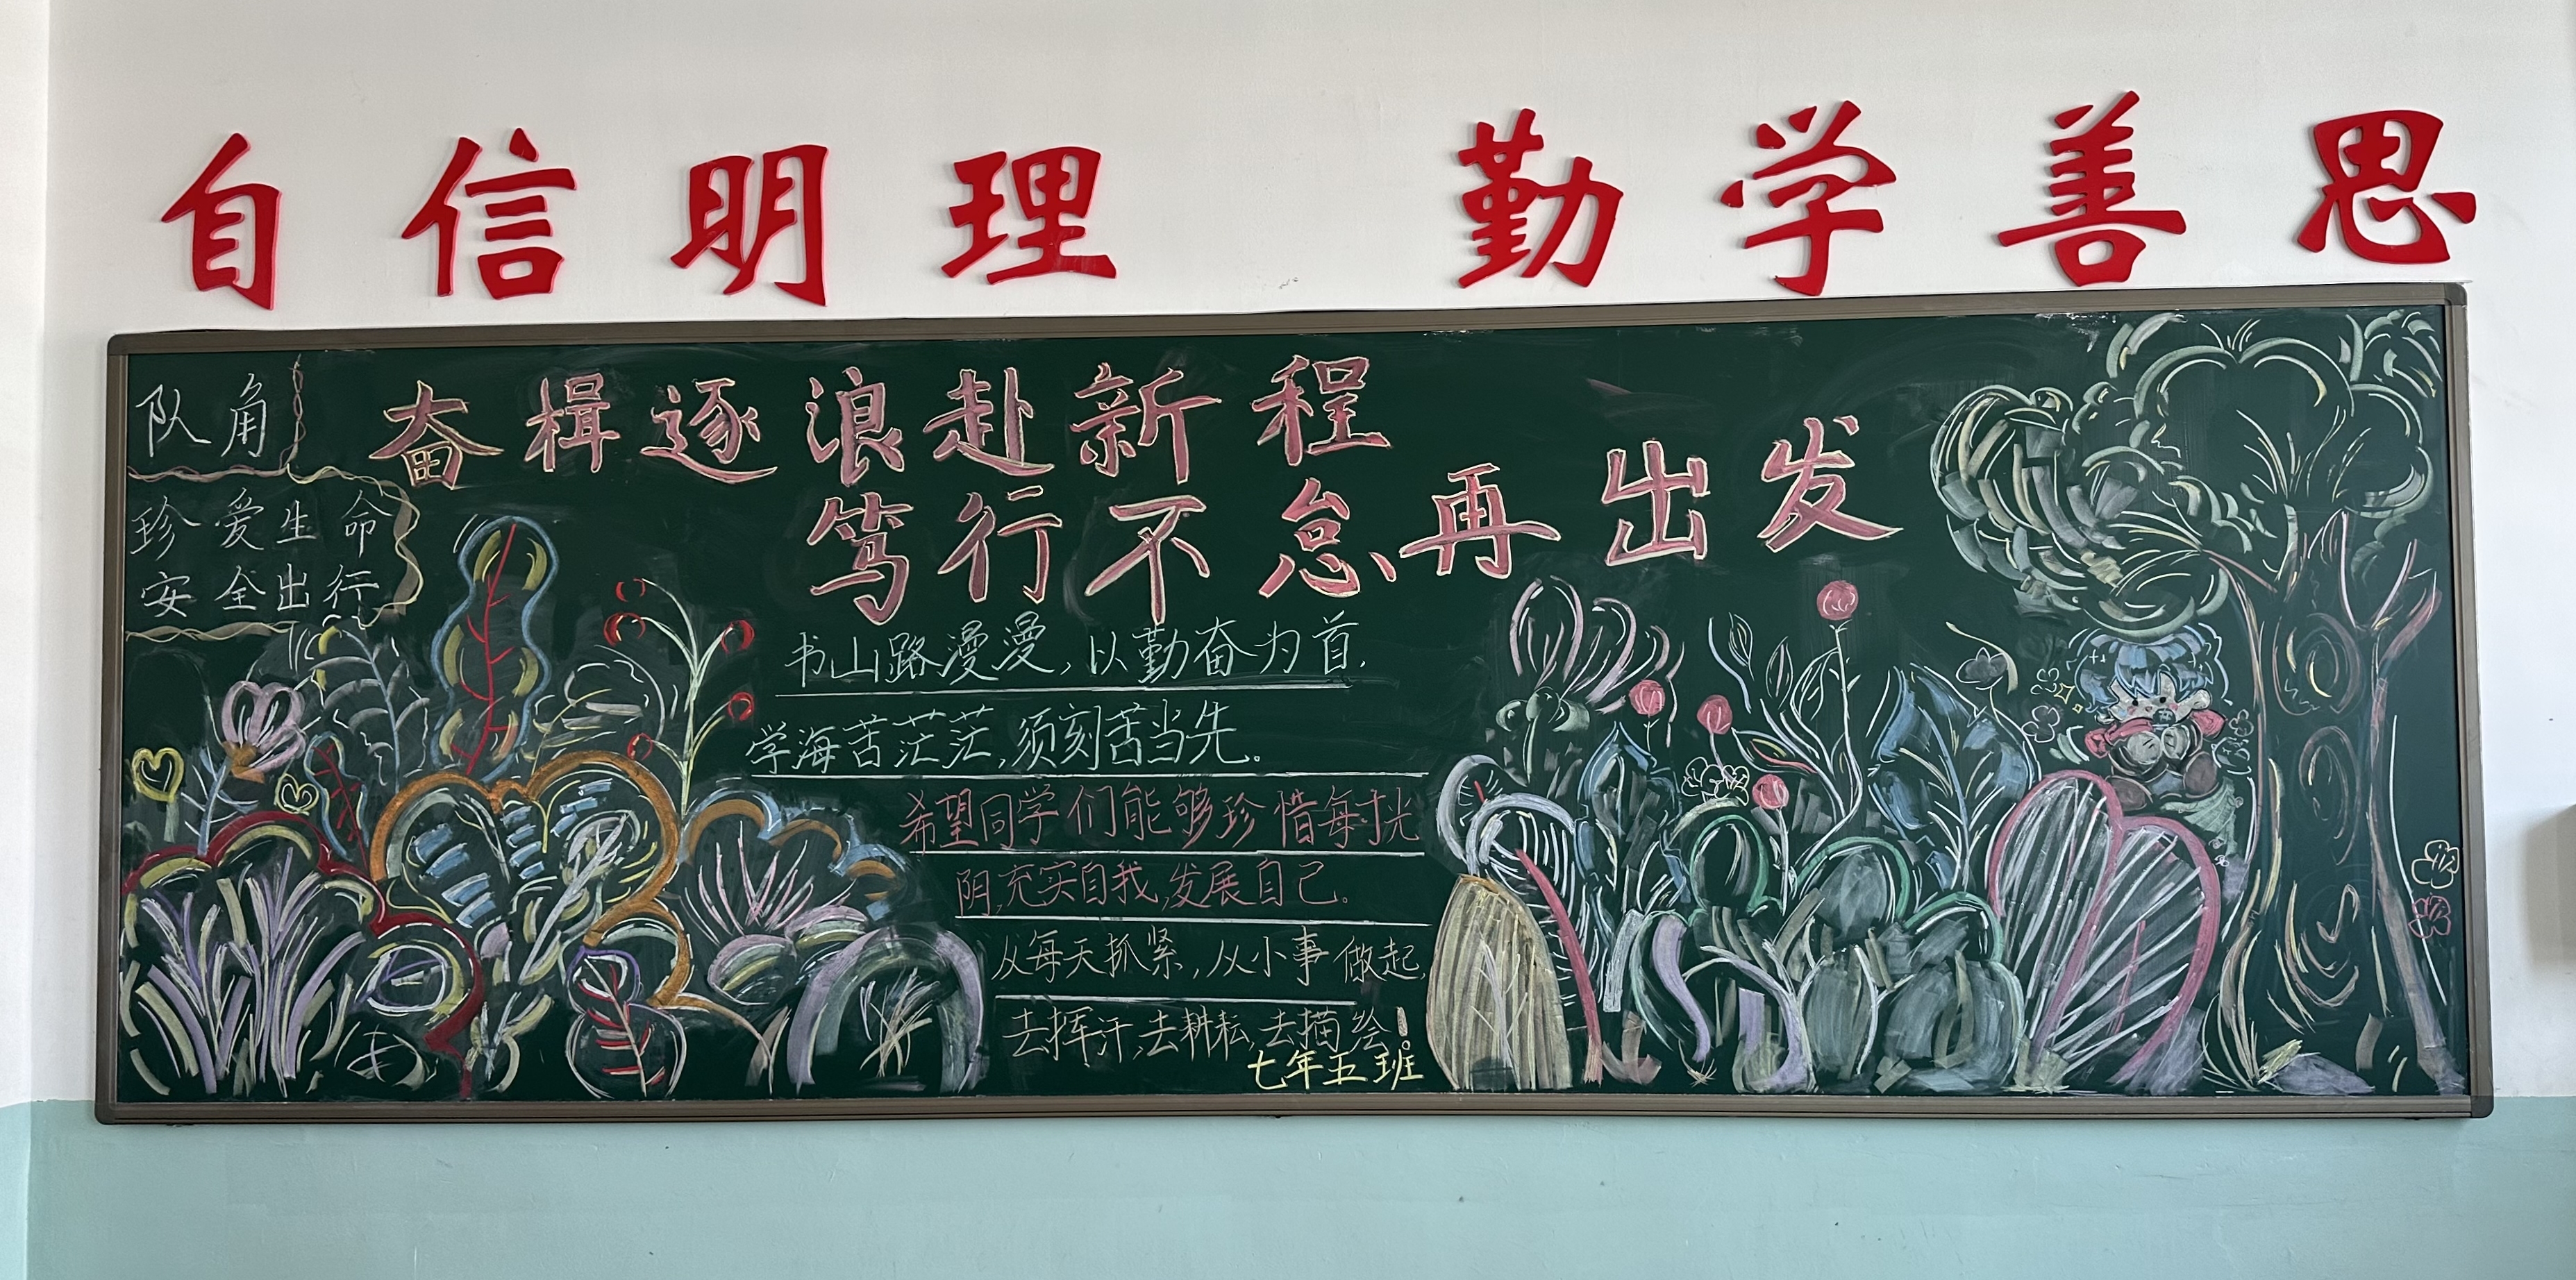 自信明理 勤学善思
队角
珍爱生命
安全出行
奋楫逐浪赴新程
笃行不怠再出发
书山路漫漫,以勤奋为首,
学海苦茫茫,须刻苦当先。
希望同学们能够珍惜每寸光
阴,充实自我,发展自己。
从每天抓紧,从小事做起,
去挥汗,去耕耘,去描绘!
七年五班